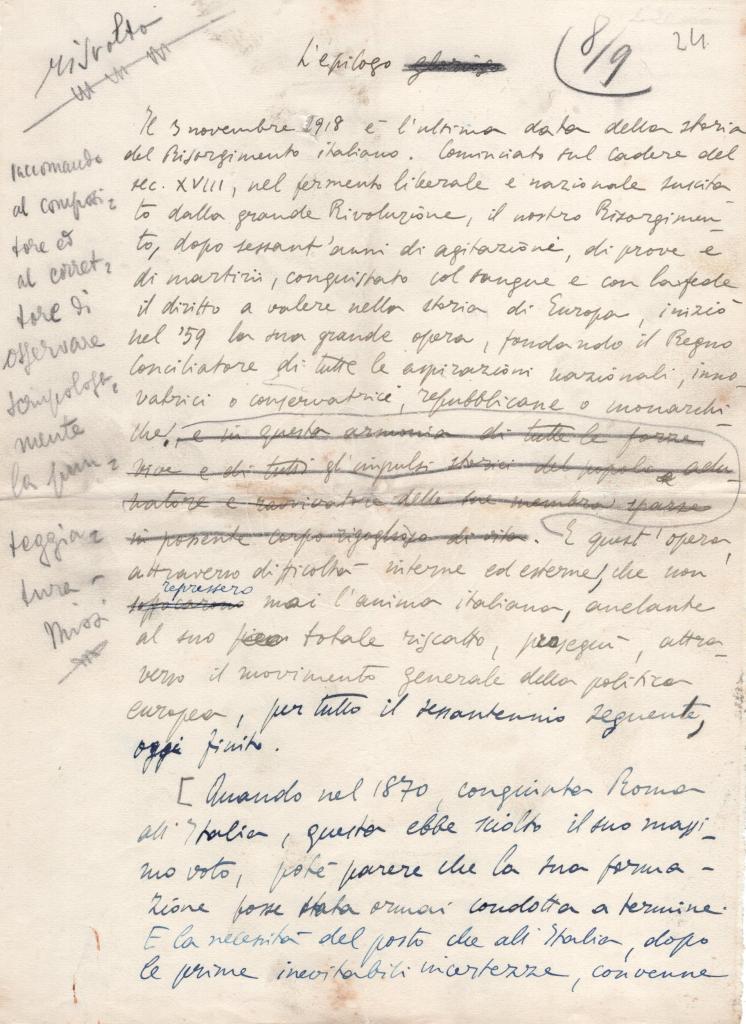 risvolto
L'epilogo
8/9
24
Il 3 novembre 1918 è l'ultima data della storia
del Risorgimento italiano. Cominciato sul cadere del
sec. XVIII, nel fermento liberale e nazionale suscita
to dalla grande Rivoluzione, il nostro Risorgimen-
to, dopo sessant'anni di agitazione, di prove e
di martirii, conquistato col sangue e con la fede
il diritto a valere nella storia di Europa, iniziò
nel '59 la sua grande opera, fondando il Regno
conciliatore di tutte le aspirazioni nazionali, inno-
vatrici o conservatrici, repubblicane o monarchi
che, e in questa armonia di tutte le forze
vive e di tutti gl'impulsi storici del popolo adu-
natore e ravvivatore delle sue membra sparse
in possente corpo rigoglioso di vita. E quest'opera,
attraverso difficoltà interne ed esterne, che non
repressero
soffocarono mai l'anima italiana, anelante
al suo totale riscatto, proseguì, attra-
verso il movimento generale della politica
europea, per tutto il sessantennio seguente,
oggi finito.
[ Quando nel 1870, conquista Roma
all'Italia, questa ebbe sciolto il suo massi-
mo voto, poté parere che la sua forma-
zione fosse stata ormai condotta a termine.
E la necessità del posto che all'Italia, dopo
le prime inevitabili incertezze, convenne
raccomando
al composi=
tore ed
al corret=
tore di
osservare
scrupolosa=
mente
la pun=
teggia=
tura -